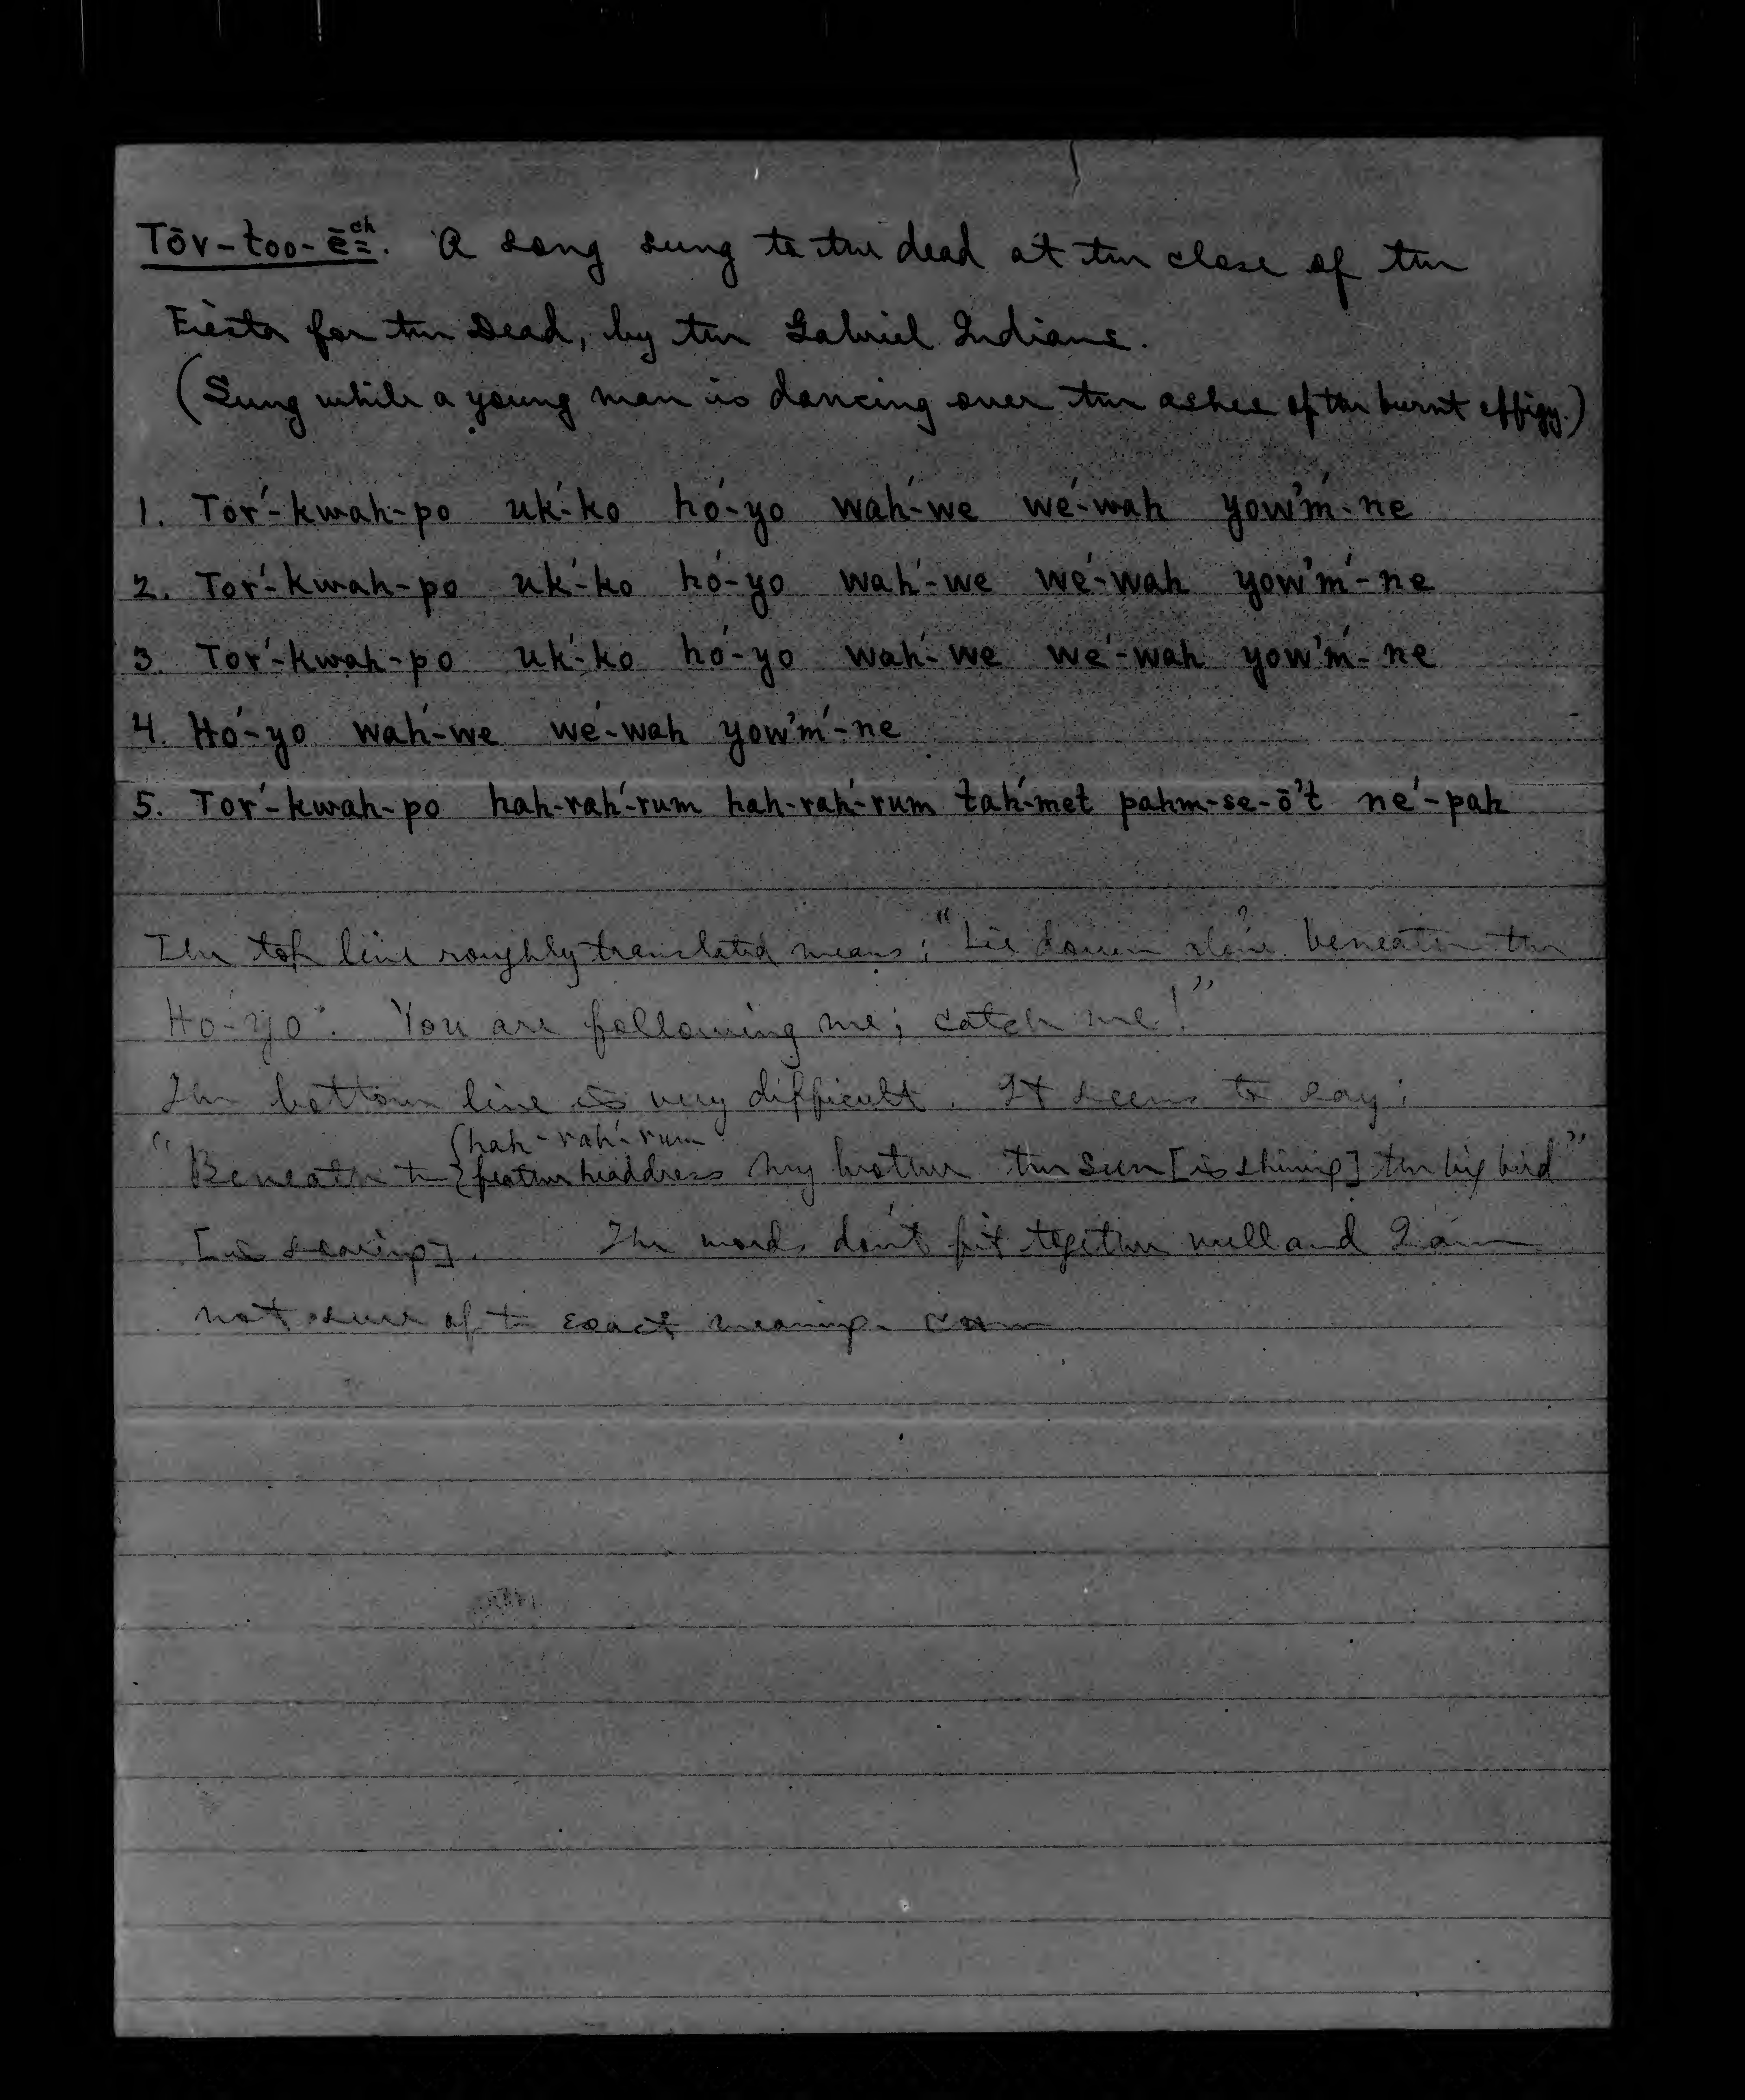 Tōv-too-ē͟ch. A song sung to the dead at the close of the
Fiesta for the Dead, by the Gabriel Indians.
(Sung while a young man is dancing over the ashes of the burnt effigy.)
1. Tor´-kwah-po uk´-ko ho´-yo wah´-we we´-wah yow'm´-ne
2. Tor´-kwah-po uk´-ko ho´-yo wah´-we we´-wah yow'm´-ne
3. Tor´-kwah-po uk´-ko ho´-yo wah´-we we´-wah yow'm´-ne
4. Ho´-yo wah´-we we´-wah yow'm´-ne
5. Tor´-kwah-po hah-rah´-rum hah-rah´-rum tah´-met pahm-se-ō't ne´-pah
The top line roughly translated means: "Lie down alone ? beneath the
Ho-yo". You are following me; catch me!"
The bottom line is very difficult. It seems to say:
hah-rah´-rum
"Beneath the { feather headdress my brother the Sun [is shining] the big bird"
[is soaring]. The words don't fit together well and I am
not sure of the exact meaning.